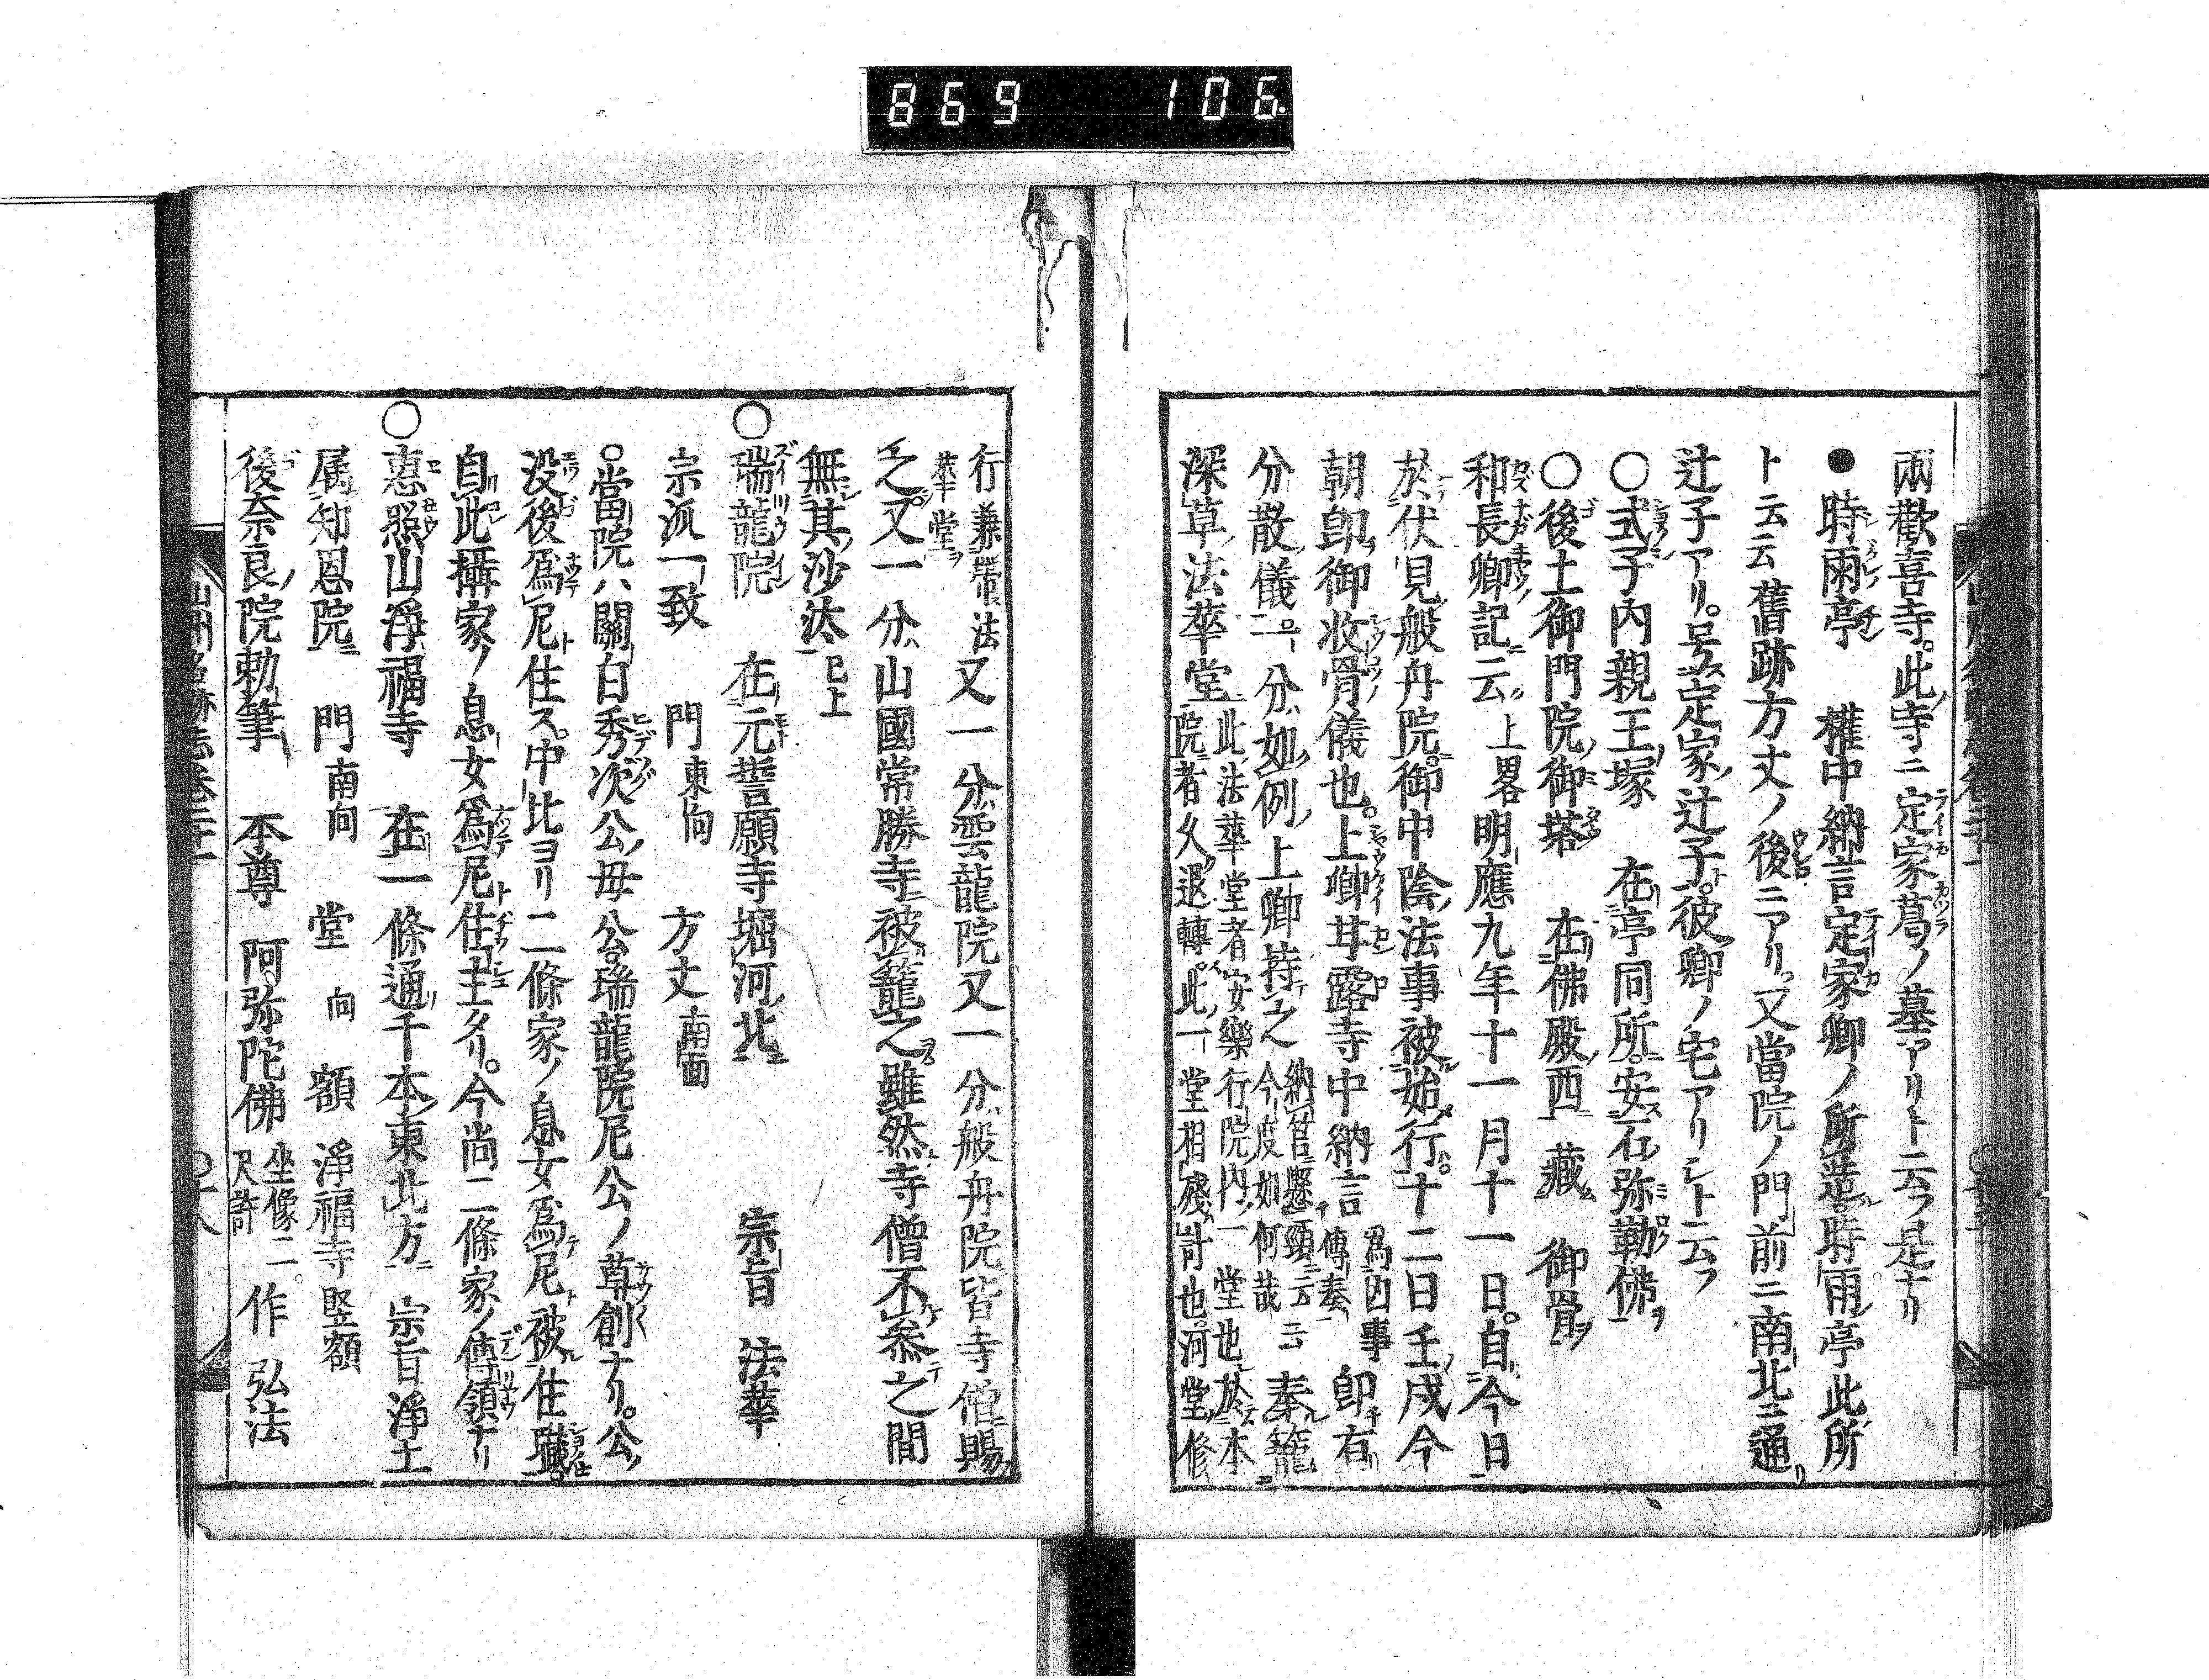 869 106
兩歡喜寺。此寺ニ定家葛ノ墓アリト云フ是ナリ
●時雨亭 權中納言定家卿ノ所造。時雨亭此所
ト云云舊跡方丈ノ後ニアリ。又當院ノ門前ニ南北ニ通
辻子アリ。号定家辻子。彼卿ノ宅アリシト云フ
○式子內親王塚 在亭同所。安石弥勒佛
○後土御門院御塔 在佛殿西 藏 御骨
和長卿記云 上畧 明應九年十一月十一日。自今日
於伏見般舟院。御中陰法事被始行。十二日壬戌今
朝卽御收骨儀也。上卿甘露寺中納言 爲凶事傳奏 卽右
分散儀 一分如例上卿持之 納筥懸頸云云今度如何哉 奉籠
深草法華堂 此法華堂者安樂行院內一堂也於本
院者久退轉。此一堂相殘計也。河堂修
行兼帶法華堂 又一分雲龍院又一分般舟院皆寺僧賜
之又一分山國常勝寺被籠之雖然寺僧不參之間
無其沙汰 已上
○瑞龍院 在元誓願寺堀河北 宗旨 法華
宗派一致 門東向 方丈南面
○當院ハ關白秀次公母公瑞龍院尼公ノ草創ナリ。公
没後爲尼住ス。中比ヨリ二條家ノ息女爲尼被住職
自此攝家ノ息女爲尼住主タリ。今尚二條家ノ傳領ナリ
○惠照山淨福寺 在一條通千本東北方 宗旨淨土
属知恩院 門南向 堂 向 額 淨福寺竪額
後奈良院勅筆 本尊 阿弥陀佛 坐像二尺許 作弘法
山州名跡志卷二十一